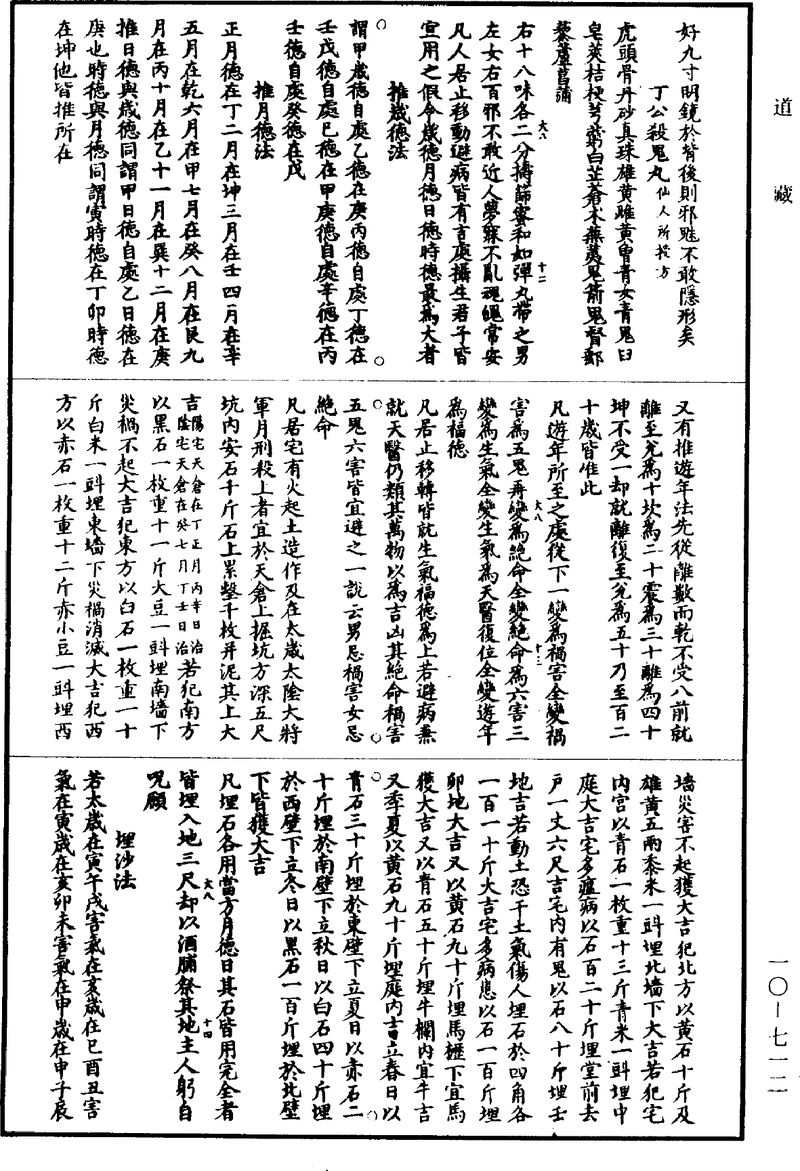 道藏
好九寸明鏡於背後則邪魅不敢隱形矣
丁公殺鬼丸仙人所授方
虎頭骨丹砂真珠雄黃雌黃曾青女青鬼臼
皂莢桔梗芎藭白芷蒼术蕪荑鬼箭鬼督郵
藜蘆菖蒲
右十八味各二分擣篩蜜和如彈丸帶之男
左女右百邪不敢近人夢寐不亂魂魄常安
凡人居止移動避病皆有吉處攝生君子皆
宜用之假令歲德月德日德時德最為大者
推歲德法
謂甲歲德自處乙德在庚丙德自處丁德在
壬戊德自處己德在甲庚德自處辛德在丙
壬德自處癸德在戊
推月德法
正月德在丁二月在坤三月在壬四月在辛
五月在乾六月在甲七月在癸八月在艮九
月在丙十月在乙十一月在巽十二月在庚
推日德與歲德同謂甲日德自處乙日德在
庚也時德與月德同謂寅時德在丁卯時德
在坤他皆推所在
大八
十二
又有推遊年法先從離數而乾不受八前就
離至兊為十坎為二十震為三十離為四十
坤不受一却就離復至兊為五十乃至百二
十歲皆准此
凡遊年所至之處從下一變為禍害全變禍
害為五鬼再變為絕命全變絕命為六害三
變為生氣全變生氣為天醫復位全變遊年
為福德
凡居止移轉皆就生氣福德為上若避病兼
就天醫仍類其萬物以為吉凶其絕命禍害
五鬼六害皆宜避之一說云男忌禍害女忌
絕命
凡居宅有火起土造作及在太歲太陰大將
軍月刑殺上者宜於天倉上掘坑方深五尺
坑內安石千斤石上累墼千枚并泥其上大
吉陽宅天倉在丁正月丙辛日治陰宅天倉在癸七月丁壬日治若犯南方
以黑石一枚重十一斤大豆一㪷埋南墻下
災禍不起大吉犯東方以白石一枚重一十
斤白米一㪷埋東墻下災禍消滅大吉犯西
方以赤石一枚重十二斤赤小豆一㪷埋西
大八
十三
墻災害不起獲大吉犯北方以黃石十斤及
雄黃五兩黍米一㪷埋北墻下大吉若犯宅
內宮以青石一枚重十三斤青米一㪷埋中
庭大吉宅多瘟病以石百二十斤埋堂前去
戶一丈六尺吉宅內有鬼以石八十斤埋壬
地吉若動土恐干土氣傷人埋石於四角各
一百一十斤大吉宅多病患以石一百斤埋
卯地大吉又以黃石九十斤埋馬櫪下宜馬
獲大吉又以青石五十斤埋牛欄內宜牛吉
又季夏以黃石九十斤埋庭內吉立春日以
青石三十斤埋於東壁下立夏日以赤石二
十斤埋於南壁下立秋日以白石四十斤埋
於西壁下立冬日以黑石一百斤埋於北壁
下皆獲大吉
凡埋石各用當方月德日其石皆用完全者
皆埋入地三尺却以酒脯祭其地主人躬自
呪願
埋沙法
若太歲在寅午戌害氣在亥歲在巳酉丑害
氣在寅歲在亥卯未害氣在申歲在申子辰
大八
十四
一〇—七一二